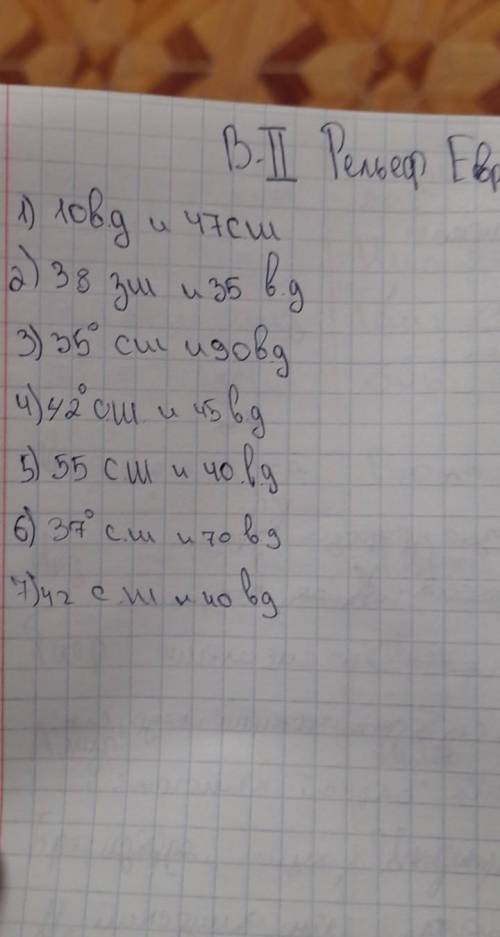 В-II Рельеф Евр
1) 10 в.д и 47 сш
2) 38 зш и 35 в.д
3) 35° сш и 90 вд
4) 42° сш и 45 в.д
5) 55 сш и 40 в.д
6) 37° с.ш и 70 в д
7) 42 с.ш и 40 вд